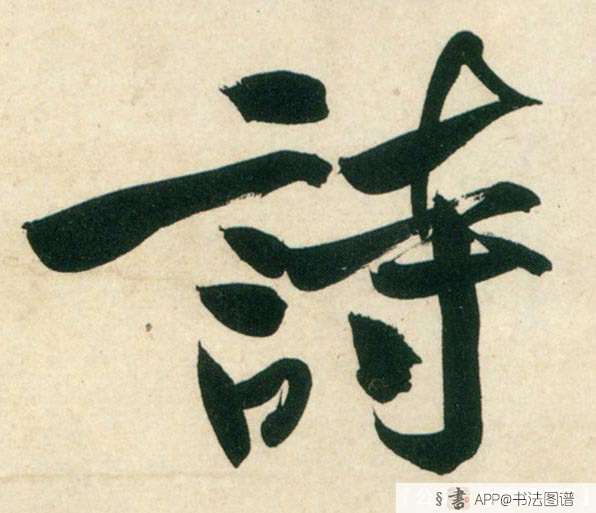 詩
「公§書 APP@书法图谱